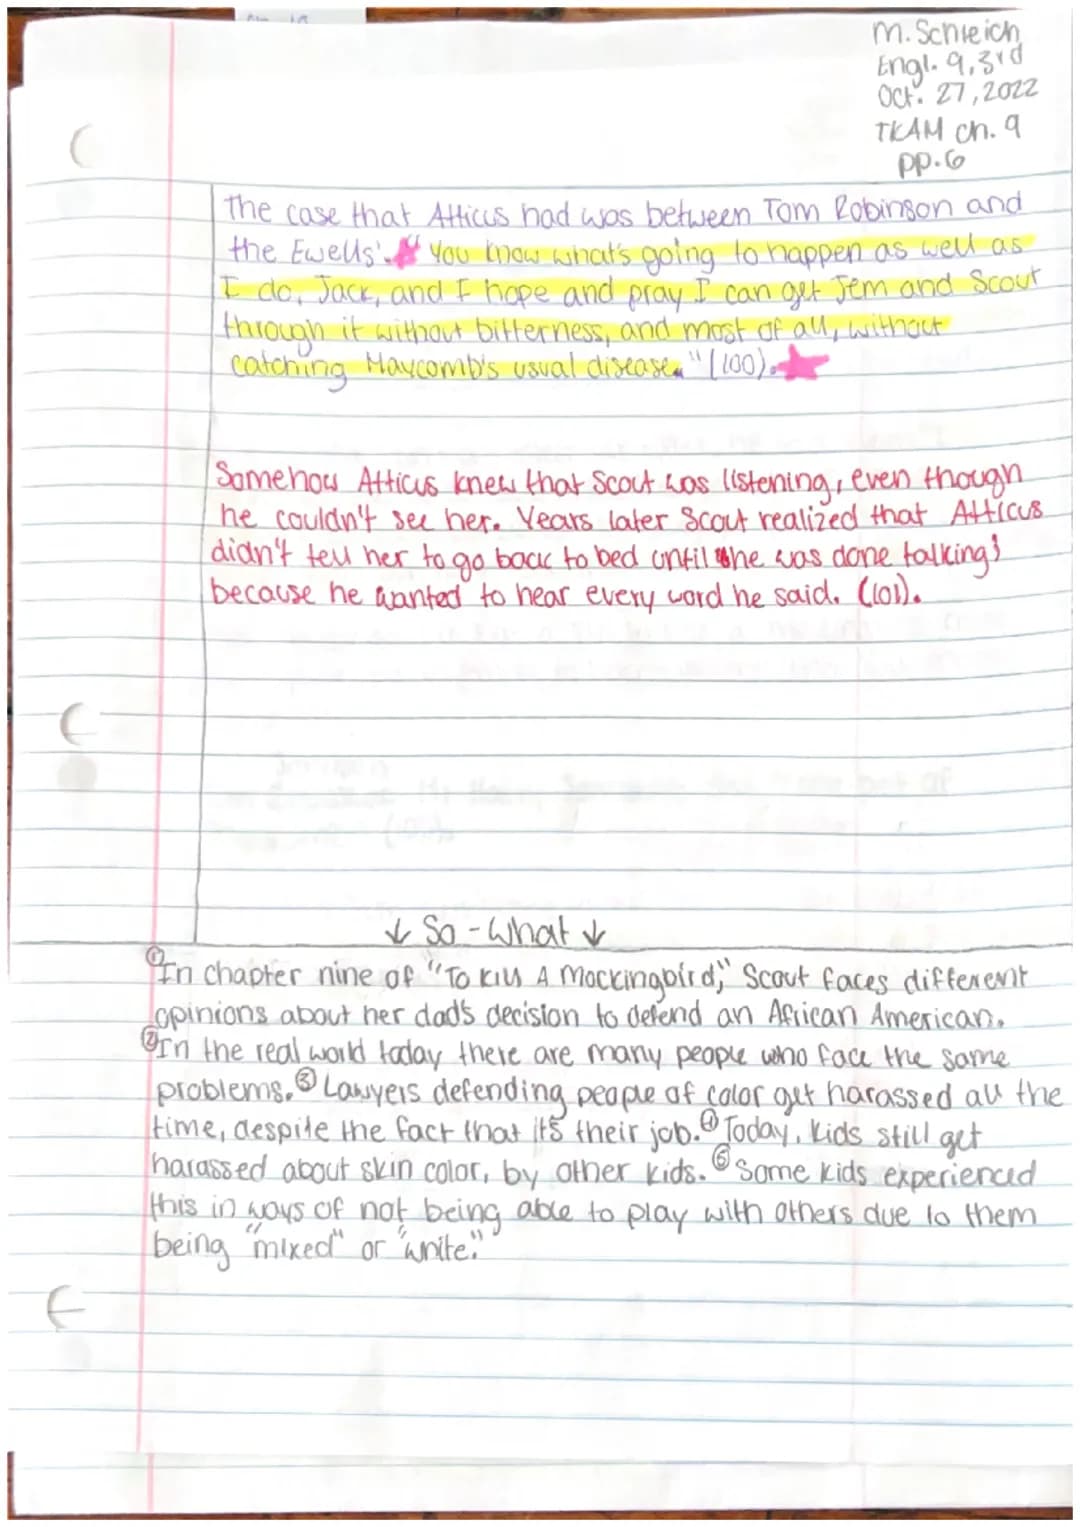 M. Schleich
Engl. 9, 3rd
Oct. 27, 2022
TKAM ch. 9
pp. 6
The case that Atticus had was between Tom Robinson and
the Ewells'. "You know what's going to happen as well as
I do, Jack, and I hope and pray I can get Jem and Scout
through it without bitterness, and most of all, without
catching Maycomb's usual disease." (100).
Somehow Atticus knew that Scout was listening, even though
he couldn't see her. Years later Scout realized that Atticus
didn't tell her to go back to bed until he was done talking;
because he wanted to hear every word he said. (101).
↓ So-What ↓
① In chapter nine of "To Kill A Mockingbird," Scout faces different
opinions about her dad's decision to defend an African American.
② In the real world today there are many people who face the same
problems. ③ Lawyers defending people of color get harassed all the
time, despite the fact that it's their job. ④ Today, kids still get
harassed about skin color, by other kids. ⑤ Some kids experienced
this in ways of not being able to play with others due to them
being "mixed" or "white."